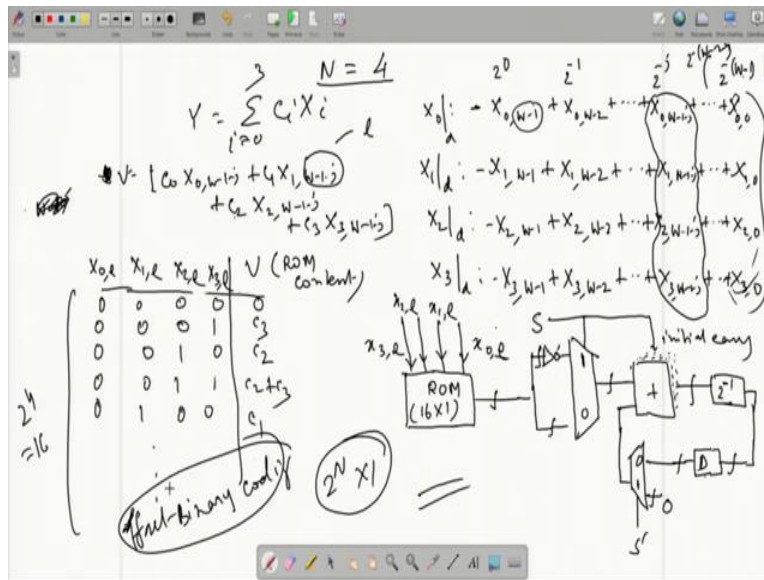 N = 4
Y = Σ_{i=0}^{3} C_i X_i
V = [C_0 X_{0,W-1-j} + C_1 X_{1,W-1-j}
+ C_2 X_{2,W-1-j}
+ C_3 X_{3,W-1-j}]
l
2^0 2^{-1} 2^{-j} 2^{-(W-2)} 2^{-(W-1)}
X_0|_d : - X_{0,W-1} + X_{0,W-2} + ... + X_{0,W-1-j} + ... + X_{0,0}
X_1|_d : - X_{1,W-1} + X_{1,W-2} + ... + X_{1,W-1-j} + ... + X_{1,0}
X_2|_d : - X_{2,W-1} + X_{2,W-2} + ... + X_{2,W-1-j} + ... + X_{2,0}
X_3|_d : - X_{3,W-1} + X_{3,W-2} + ... + X_{3,W-1-j} + ... + X_{3,0}
X_{0,l} X_{1,l} X_{2,l} X_{3,l} V (ROM content)
0 0 0 0 0
0 0 0 1 C_3
0 0 1 0 C_2
0 0 1 1 C_2+C_3
0 1 0 0 C_1
2^4
=16
ffset-Binary coding
2^N X1
X_{3,l} X_{2,l} X_{1,l} X_{0,l}
ROM
(16X1)
S
1
0
initial carry
+
2^{-1}
D
0
1
0
S'